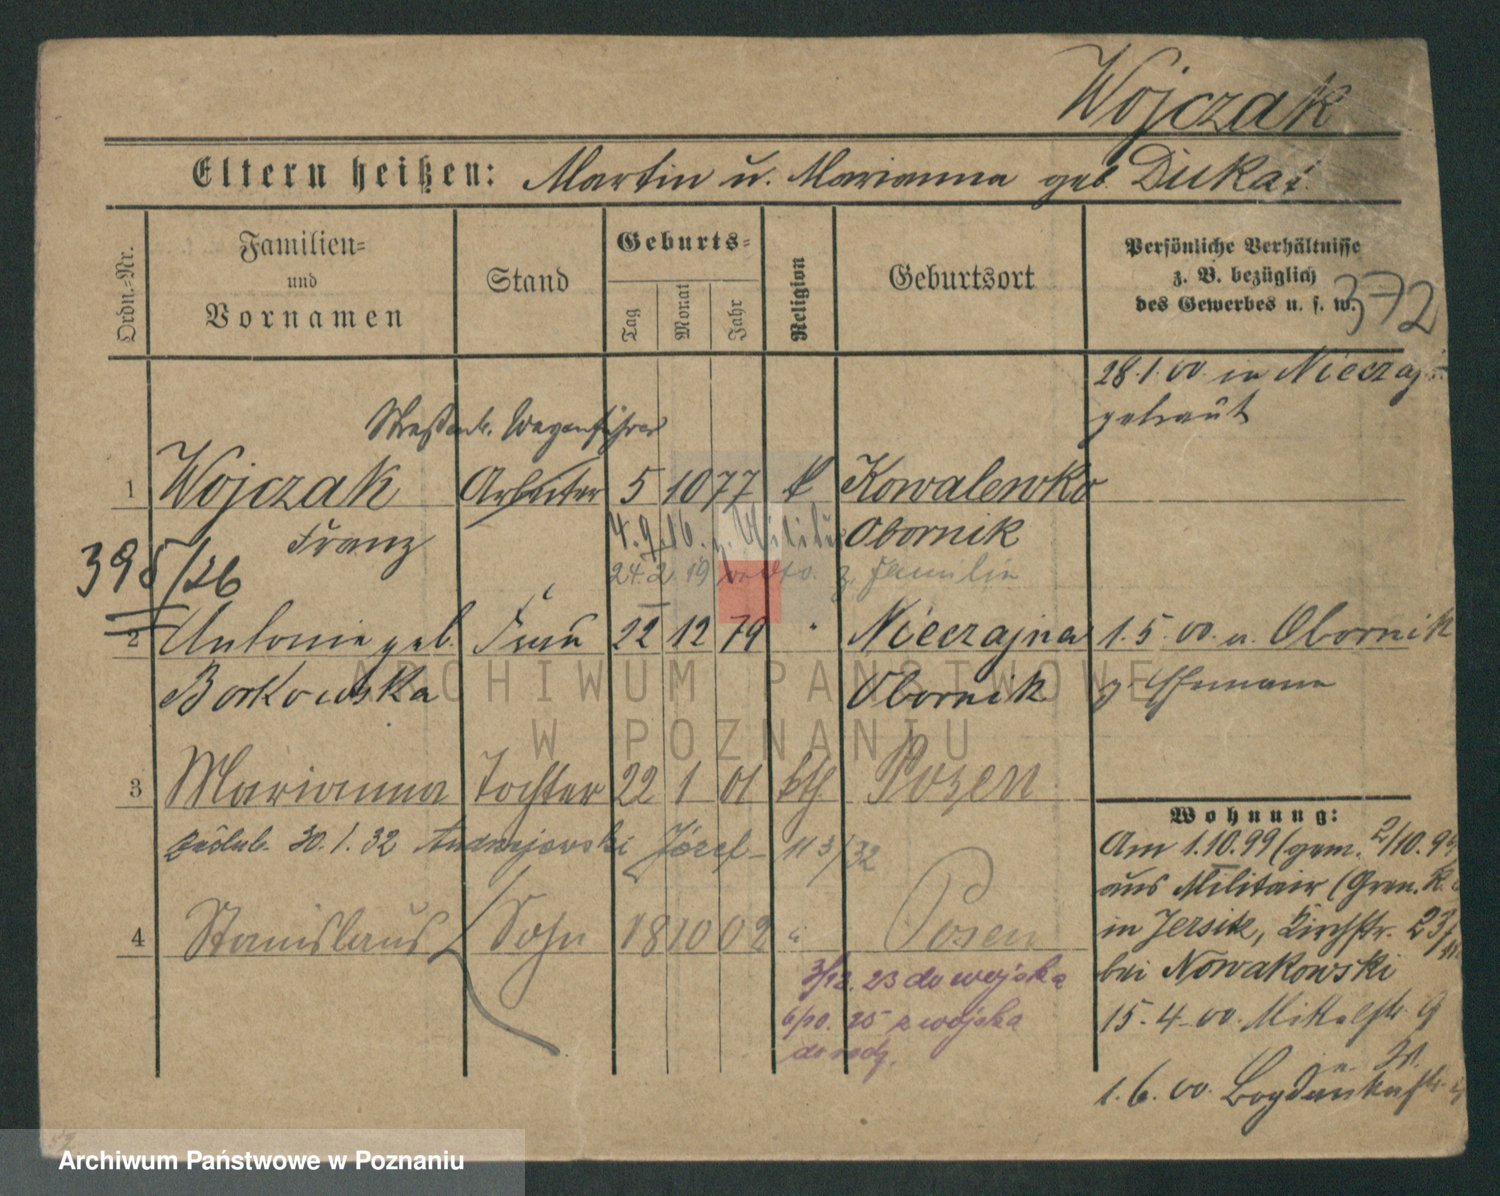 Wojczak
Eltern heißen: Martin u. Marianna geb. Dukat
Ordn.-Nr.
Familien-
und
Vornamen
Stand
Geburts-
Tag
Monat
Jahr
Religion
Geburtsort
Persönliche Verhältnisse
z. B. bezüglich
des Gewerbes u. s. w.
372
28.1.00 in Nieczaj
getraut
Straßenb. Wagenführer
1 Wojczak Arbeiter 5 10 77 k Kowalewko
Franz 4.9.16. z. Militär Obornik
24.2.19 z. Familie
395/26
2 Antonie geb. Frau 22 12 79 " Nieczajna 1.5.00. v. Obornik
Borkowska Obornik z. Ehemann
3 Marianna Tochter 22 1 01 kth Posen
zaślub. 30.1.32 Andrzejewski Józef 113/32
4 Stanislaus Sohn 18 10 02 " Posen
3/12. 23 do wojska
6/10. 25 z wojska
do rodz.
Wohnung:
Am 1.10.99 (gem. 2/10.99
aus Militair (Gren. R.
in Jersitz, Kirchstr. 23
bei Nowakowski
15.4.00. 9
1.6.00. Bogdankastr.
ARCHIWUM PAŃSTWOWE
W POZNANIU
Archiwum Państwowe w Poznaniu